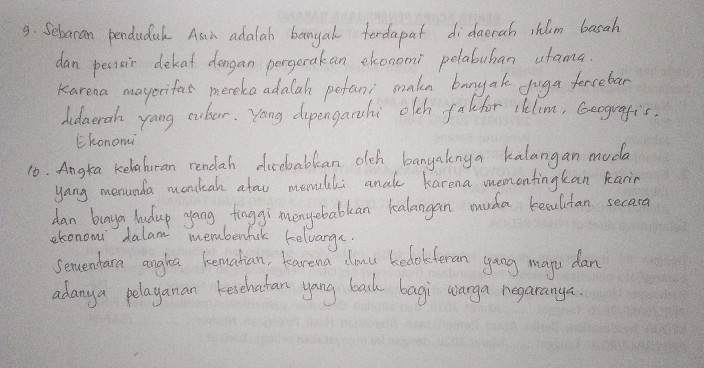 9. Sebaran penduduk Asia adalah banyak terdapat di daerah iklim basah
dan pesisir dekat dengan pergerakan ekonomi pelabuhan utama.
Karena mayoritas mereka adalah petani maka banyak juga tersebar
didaerah yang subur. Yang dipengaruhi oleh faktor iklim, Geografis,
Ekonomi
10. Angka kelahiran rendah disebabkan oleh banyaknya kalangan muda
yang menunda menikah atau memiliki anak karena mementingkan karir
dan biaya hidup yang tinggi menyebabkan kalangan muda kesulitan secara
ekonomi dalam membentuk keluarga.
Sementara angka kematian, karena ilmu kedokteran yang maju dan
adanya pelayanan kesehatan yang baik bagi warga negaranya.